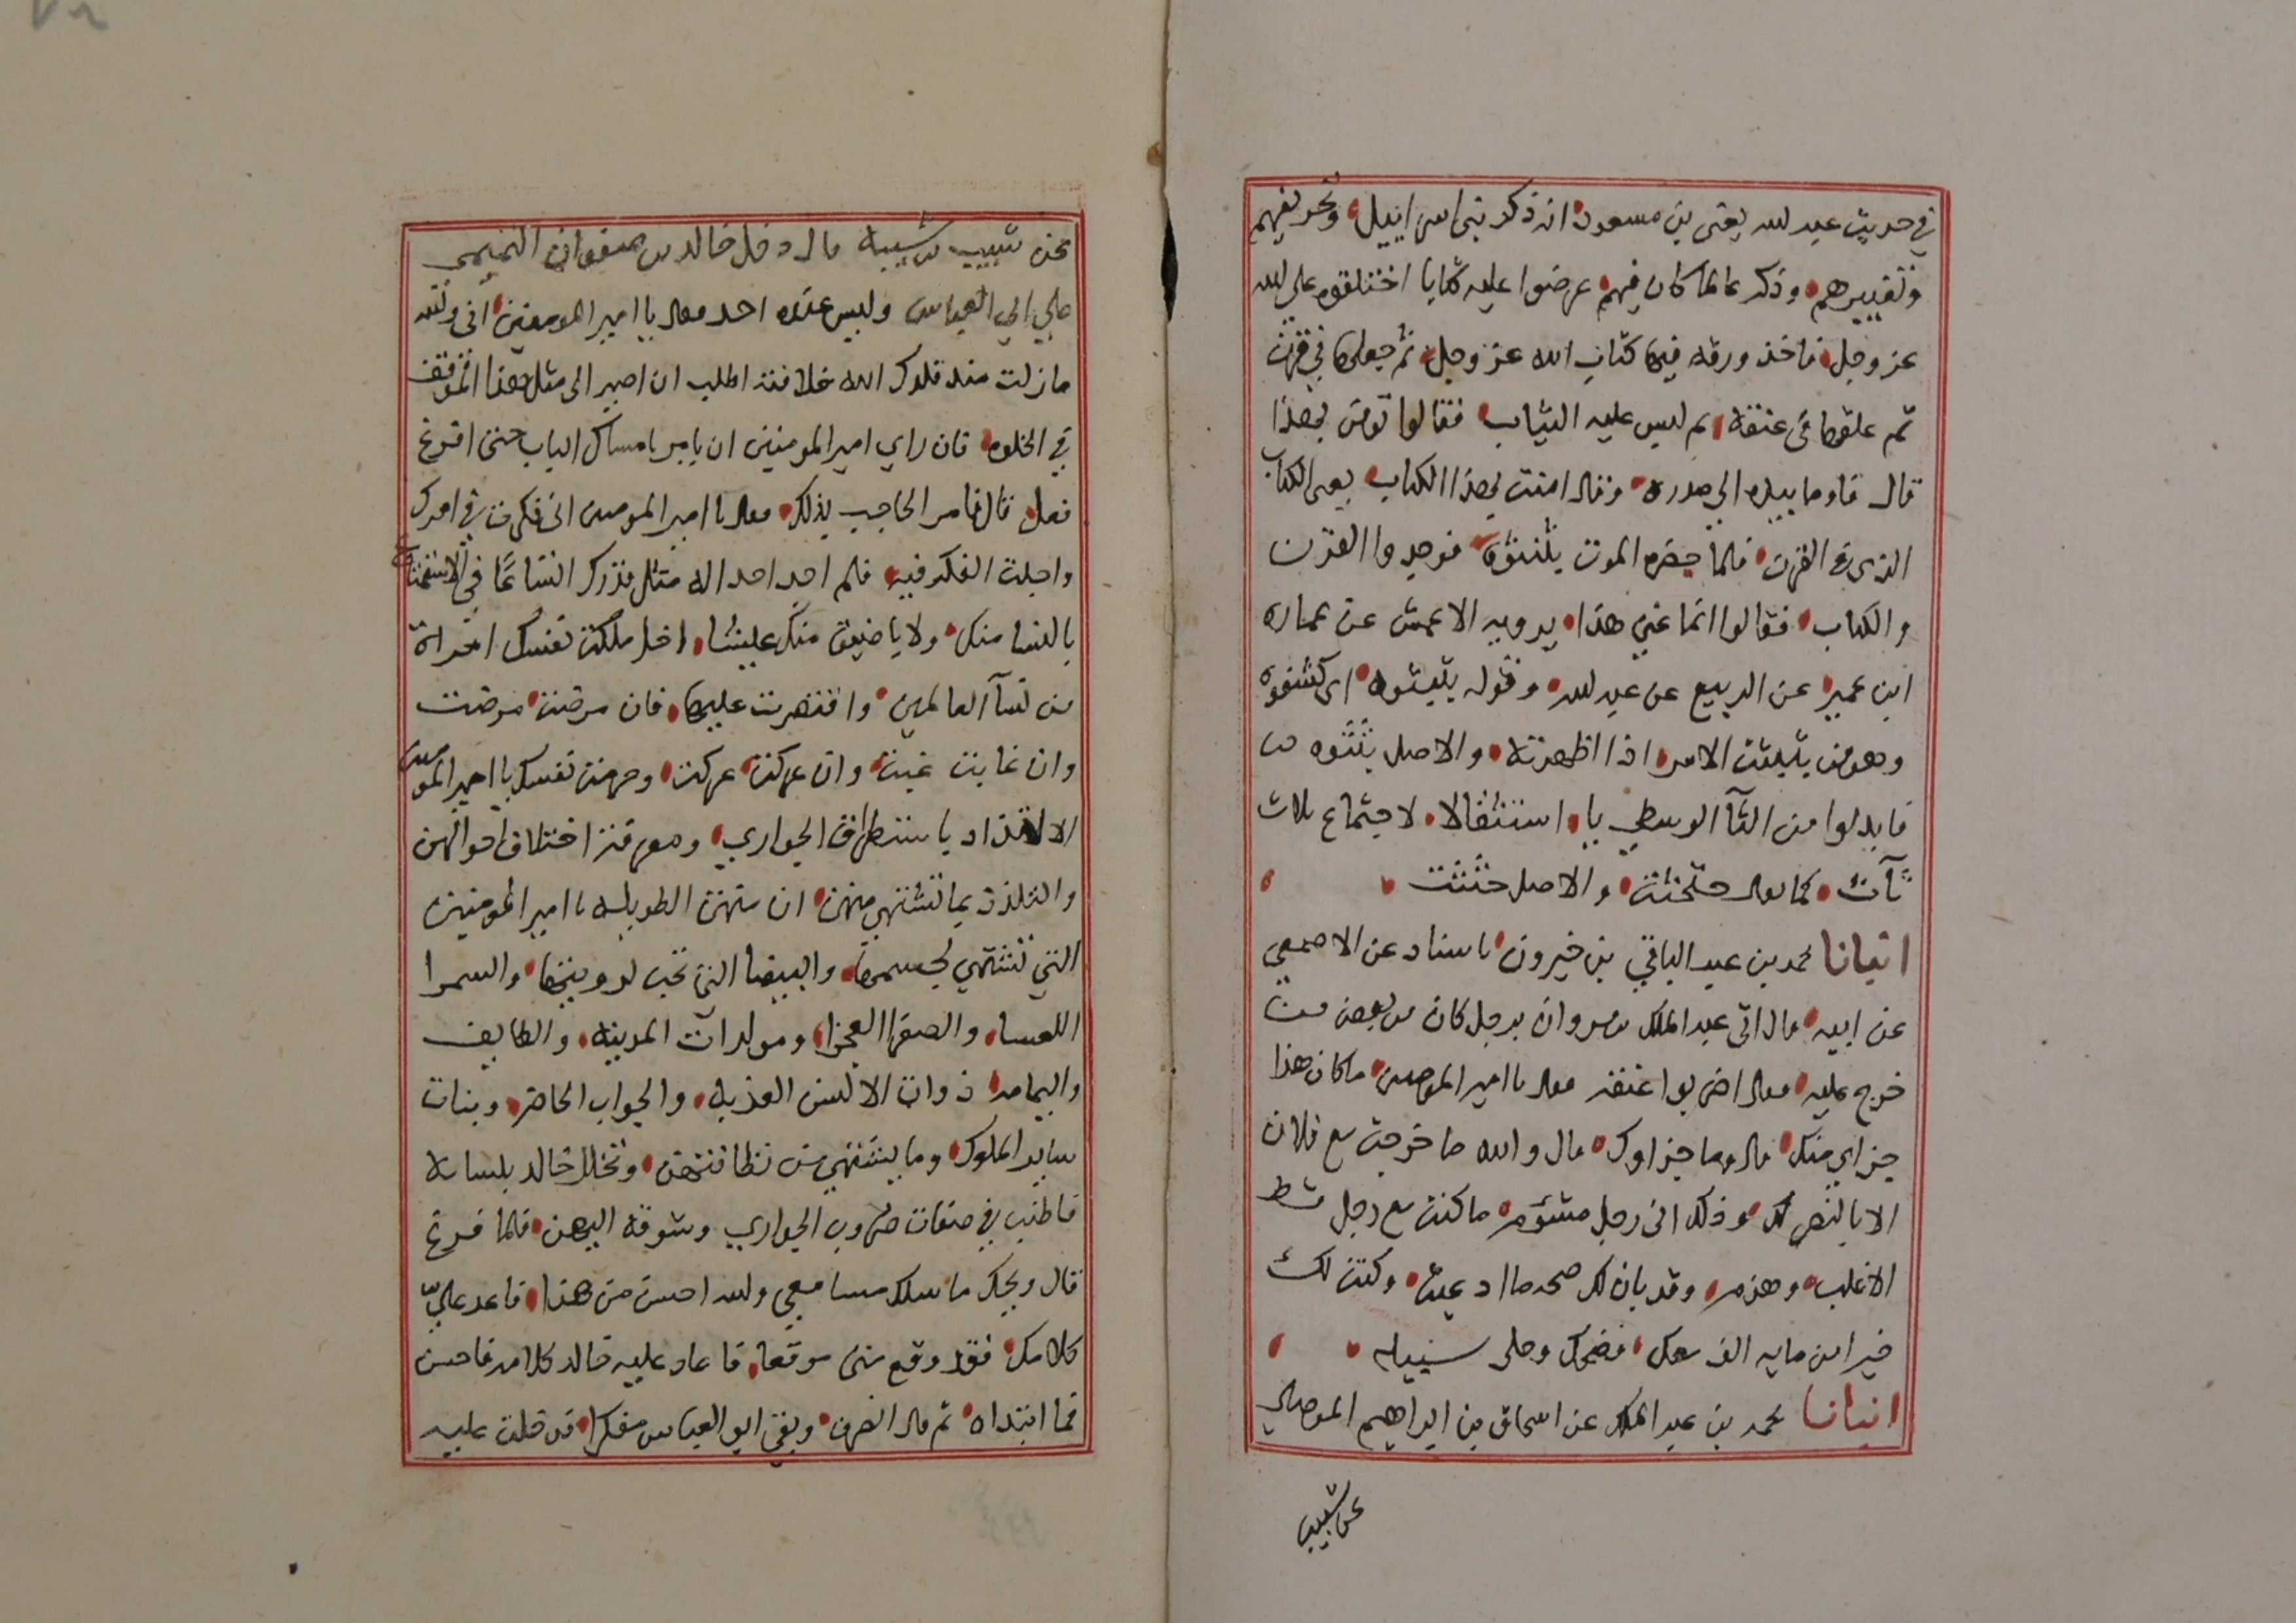 في حديث عبد الله يعني بن مسعود انه ذكر بني اسراييل وتحريفهم
وتغييرهم وذكر عالما كان فيهم عرضوا عليه كتابا اختلقوه على الله
عز وجل فاخذ ورقه فيها كتاب الله عز وجل ثم جعلها في قرن
ثم علقها في عنقه ثم لبس عليه الثياب فقالوا تومن بهذا
قال فاوما بيده الى صدره وقال امنت بهذا الكتاب يعني الكتاب
الذي في القرن فلما حضره الموت بثبثوه فوجدوا القرن
والكتاب فقالوا انما عني هذا يرويه الاعمش عن عماره
ابن عمير عن الربيع عن عبد الله وقوله بثبثوه اي كشفوه
وهو من بثبثت الامر اذا اظهرته والاصل بثثوه
فابدلوا من الثآ الوسطى با استثقالا لاجتماع ثلاث
ثآت كما يقال حثحثت والاصل حثثت
انبانا محمد بن عبد الباقي بن خيرون باسناد عن الاصمعي
عن ابيه قال اتي عبد الملك بن مروان برجل كان مع بعض من
خرج عليه فقال اضربوا عنقه فقال يا امير المومنين ما كان هذا
جزاي منك قال وما جزاوك قال والله ما خرجت مع فلان
الا بالنصر لك وذلك اني رجل مشوم ما كنت مع رجل قط
الا غلب وهزم وقد بان لك صحه ما ادعيت وكنت لك
خيرا من مايه الف معك فضحك وخلى سبيله
انبانا محمد بن عبد الملك عن اسحاق بن ابراهيم الموصلي
عن شبيب
عن شبيب بن شيبه قال دخل خالد بن صفوان التميمي
على ابي العباس وليس عنده احد فقال يا امير المومنين اني والله
ما زلت منذ قلدك الله خلافته اطلب ان اصير الى مثل هذا الموقف
في الخلوه فان راي امير المومنين ان يامر بامساك الباب حتى افرغ
فعل قال فامر الحاجب بذلك فقال يا امير المومنين اني فكرت في امرك
واجلت الفكر فيه فلم اجد احدا له مثل قدرك اتساعا في الاستمتاع
بالنسا منك ولا باضيق منك عليشا انك ملكت نفسك امراة
من نسآ العالمين واقتصرت عليها فان مرضت مرضت
وان غابت غبت وان عركت عركت وحرمت نفسك يا امير المومنين
الالتذاذ باستطراف الجواري ومعرفة اختلاف احوالهن
والتلذذ بما تشتهي منهن ان منهن الطويله يا امير المومنين
التي تشتهي لجسمها والبيضا التي تحب لروينها والسمرا
اللعسا والصفرا العجزا ومولدات المدينه والطايف
واليمامه ذوات الالسن العذبه والجواب الحاضر وبنات
ساير الملوك وما يشتهي من نظافتهن وتخلل خالد بلسانه
فاطنب في صفات ضروب الجواري وشوقه اليهن فلما فرغ
قال ويحك ما سلك مسامعي والله احسن من هذا فاعد علي
كلامك فقد وقع مني موقعا فاعاد عليه خالد كلامه فاحسن
مما ابتداه ثم قال انصرف وبقي ابو العباس مفكرا فدخلت عليه